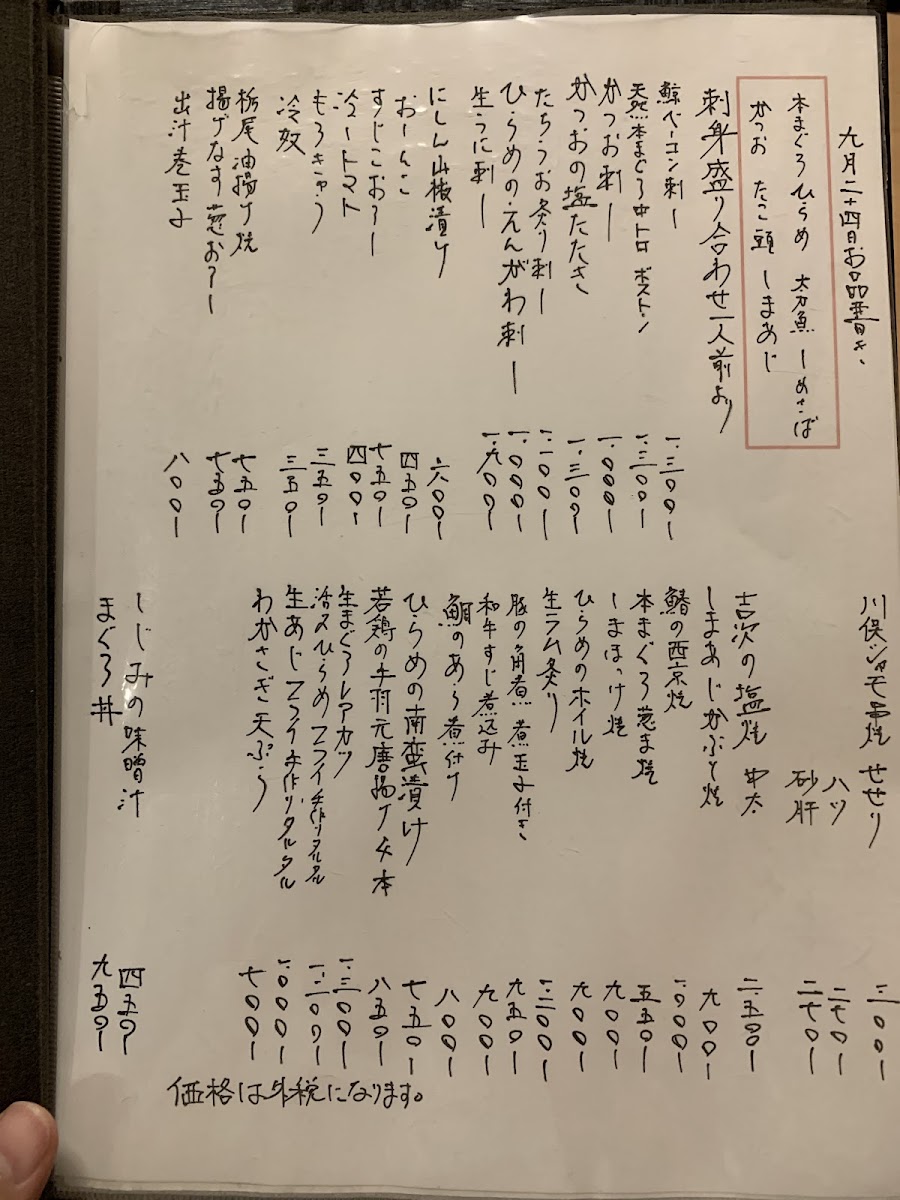 九月二十四日お品書き
本まぐろ ひらめ 太刀魚 しめさば
かつお たこ頭 しまあじ
刺身盛り合わせ一人前より
鯨ベーコン刺し 一.三〇〇ー
天然本まぐろ中トロ ボストン 一.三〇〇ー
かつお刺し 一.〇〇〇ー
かつおの塩たたき 一.三〇〇ー
たちうお炙り刺し 一.一〇〇ー
ひらめのえんがわ刺し 一.〇〇〇ー
生うに刺し 一.九〇〇ー
にしん山椒漬け 六〇〇ー
おしんこ 四五〇ー
すじこおろし 七五〇ー
冷しトマト 四〇〇ー
もろきゅう 三五〇ー
冷奴 三五〇ー
栃尾油揚げ焼 七五〇ー
揚げなす葱おろし 七五〇ー
出汁巻玉子 八〇〇ー
川俣シャモ串焼 せせり 三〇〇ー
ハツ 二七〇ー
砂肝 二七〇ー
吉次の塩焼 中太 二.五〇〇ー
しまあじかぶと焼 九〇〇ー
鰆の西京焼 一.〇〇〇ー
本まぐろ葱ま焼 五五〇ー
しまほっけ焼 九〇〇ー
ひらめのホイル焼 九〇〇ー
生ラム炙り 一.二〇〇ー
豚の角煮 煮玉子付き 九五〇ー
和牛すじ煮込み 九〇〇ー
鯛のあら煮付け 八〇〇ー
ひらめの南蛮漬け 七五〇ー
若鶏の手羽元唐揚げ 4本 八五〇ー
生まぐろレアカツ 一.三〇〇ー
活〆ひらめフライ 手作りタルタル 一.一〇〇ー
生あじフライ 手作りタルタル 一.〇〇〇ー
わかさぎ天ぷら 七〇〇ー
しじみの味噌汁 四五〇ー
まぐろ丼 九五〇ー
価格は外税になります。